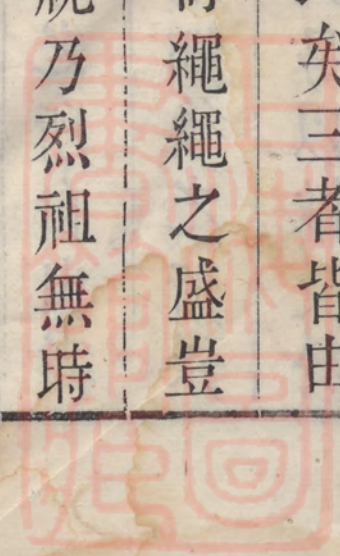 矣三者皆由
繩繩之盛豈
視乃烈祖無時